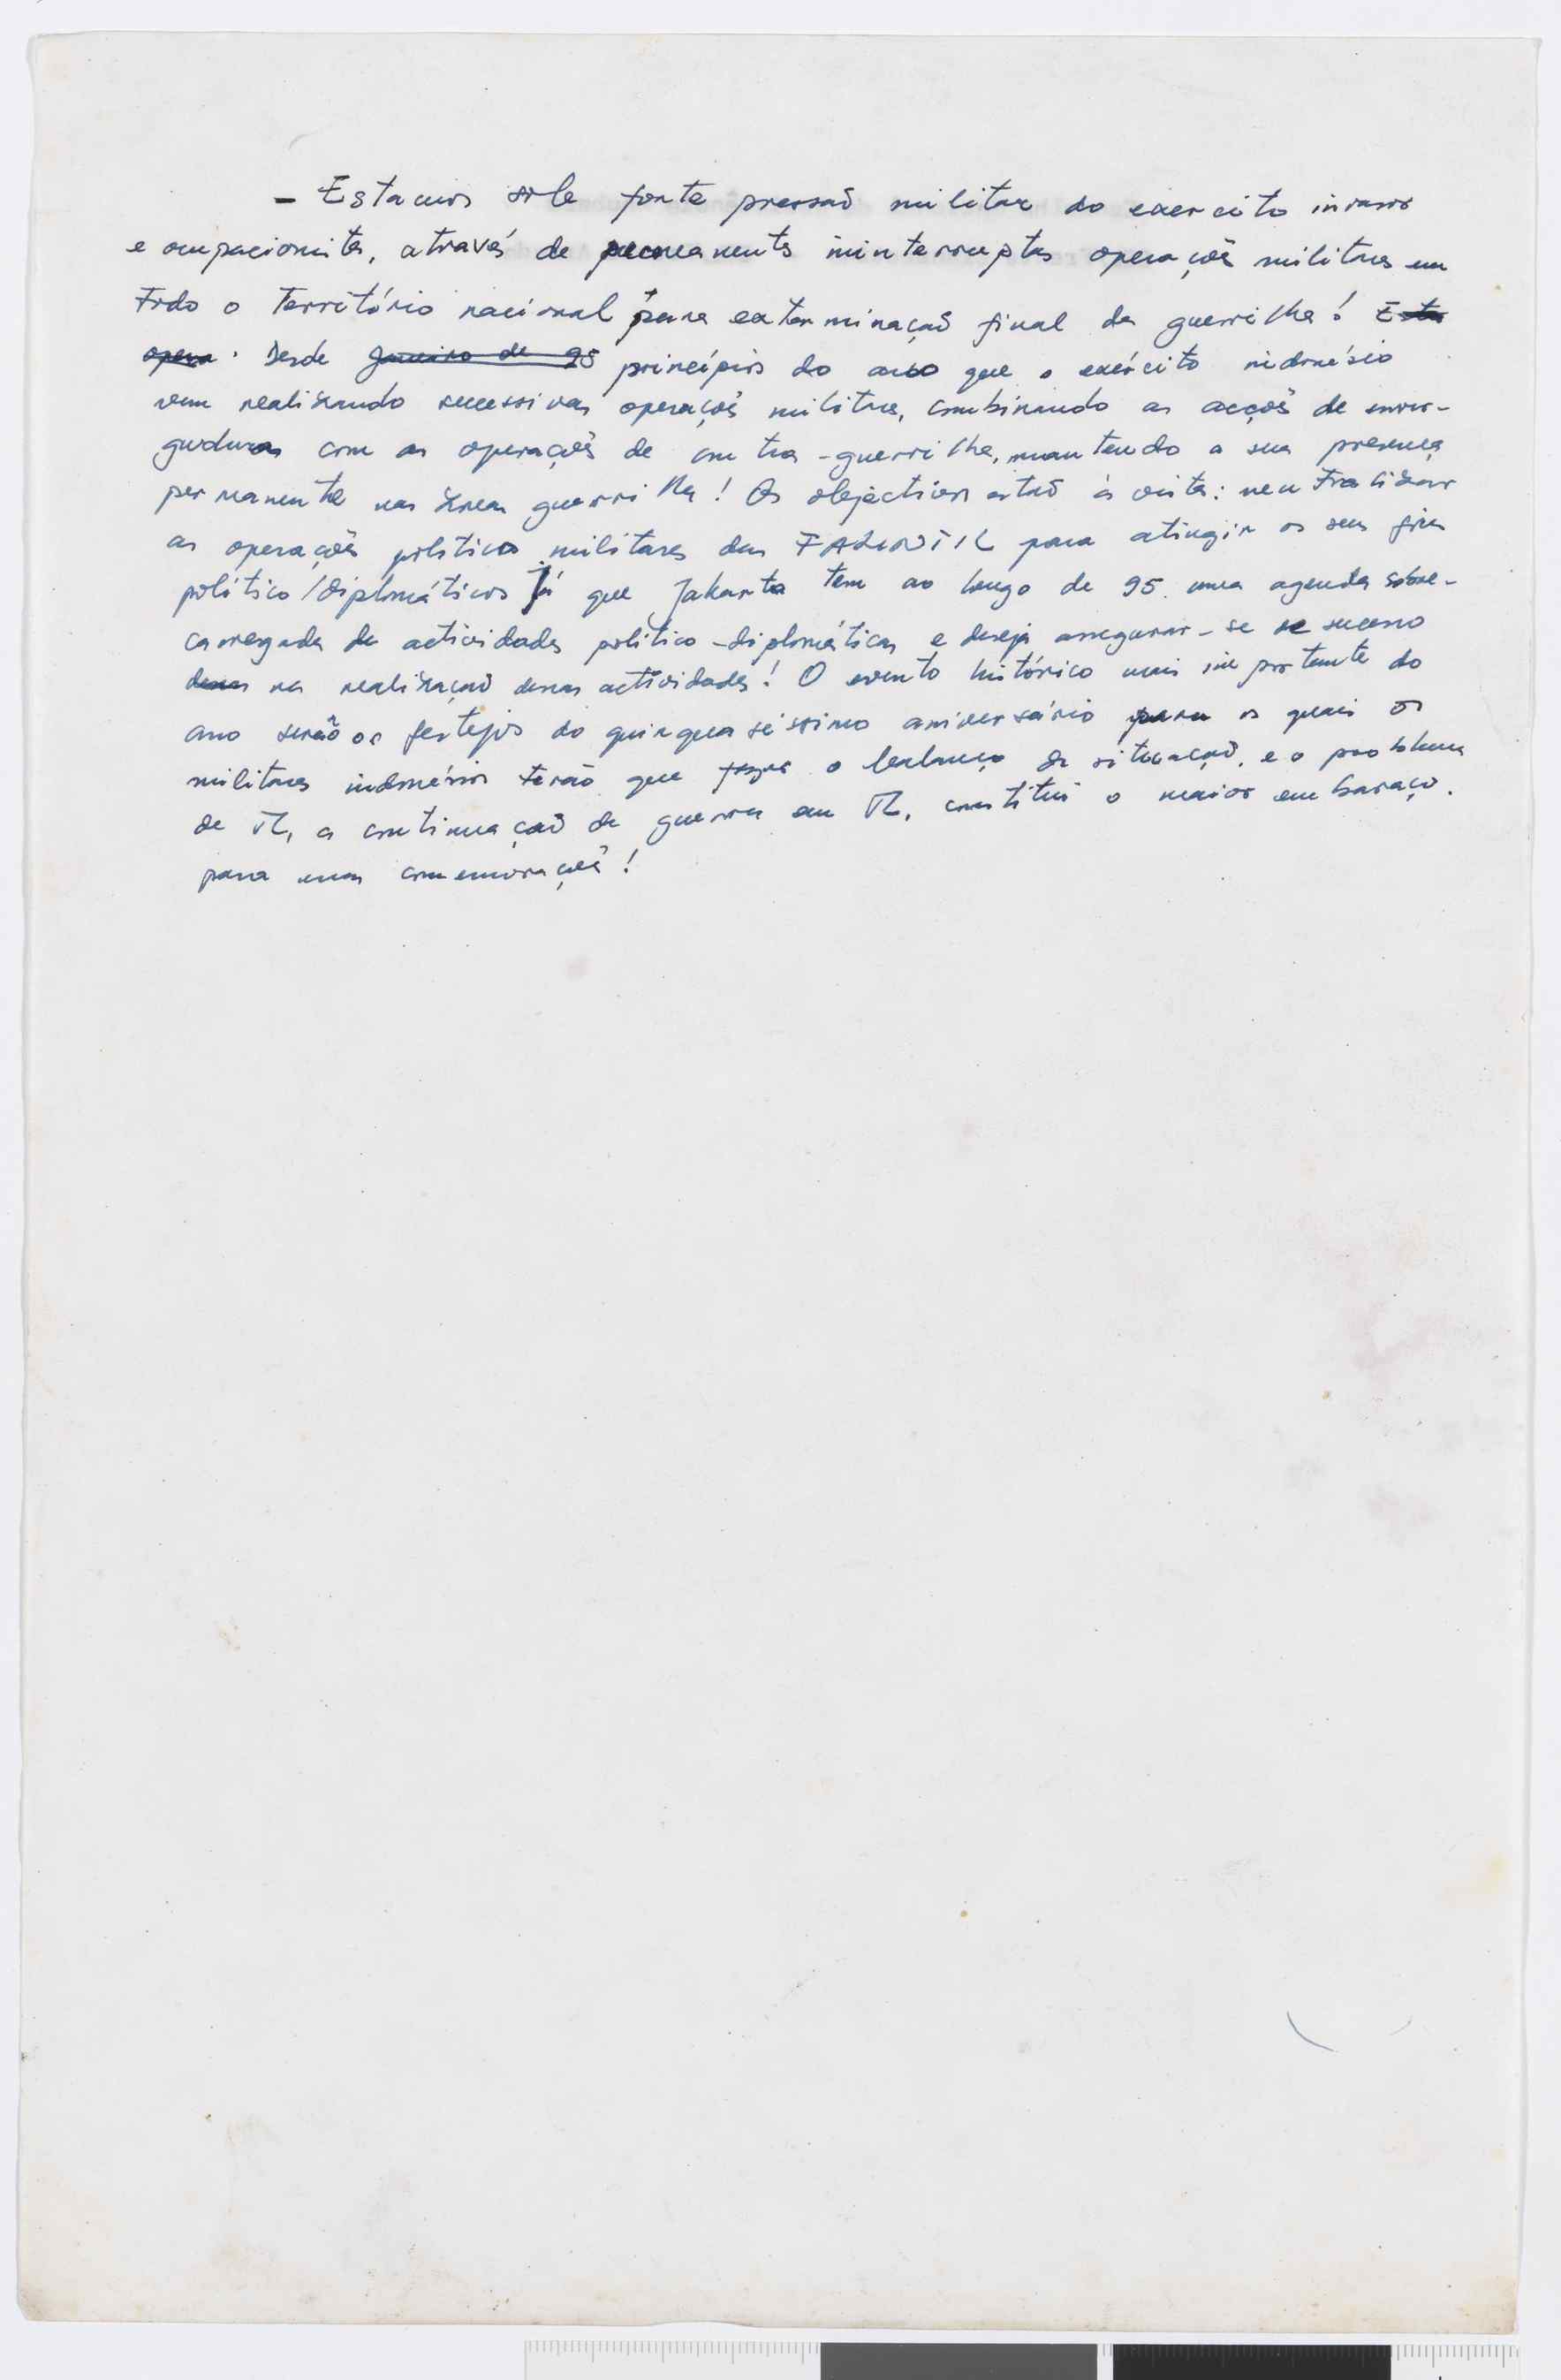 - Estamos sob forte pressaõ militar do exercito invasor
e ocupacionista, através de permanentes ininterruptas operaçoẽs militares em
todo o território nacional para exterminaçaõ final da guerrilha! Esta
opera. Desde Janeiro de 95 princípios do ano que o exército indonésio
vem realizando sucessivas operaçoẽs militares, combinando as acçoẽs de enver-
gadura com as operaçoẽs de contra-guerrilha, mantendo a sua presença
permanente nas zonas guerrilha! Os objectivos estaõ à vista: neutralizar
as operaçoẽs politico militares das FALINTIL para atingir os seus fins
político/diplomáticos já que Jakarta tem ao longo de 95 uma agenda sobre-
carregada de actividades político-diplomáticas e deseja assegurar-se se sucesso
dessas na realizaçaõ dessas actividades! O evento histórico mais importante do
ano serão os festejos do quinquaséssimo aniversário para os quais os
militares indonésios terão que fazer o balanço da situaçaõ, e o problema
de TL, a continuaçaõ da guerra em TL, constitui o maior embaraço.
para essas comemoraçoẽs!